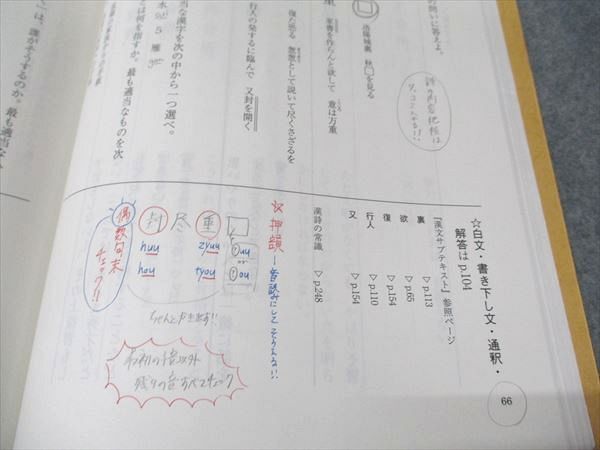 の問いに答えよ。
洛陽城裏 秋□を見る
家書を作らんと欲して 意は万重
復た恐る 怱怱として説いて尽くさざるを
行人の発するに臨んで 又封を開く
当な漢字を次の中から一つ選べ。
5 雁
とは何を指すか。最も適当なものを次
」は、誰がそうするのか。最も適当な
☆白文・書き下し文・通釈・
解答は p.104
『漢文サブテキスト』参照ページ
裏 ▽p.113
欲 ▽p.65
復 ▽p.154
行人 ▽p.110
又 ▽p.154
漢詩の常識 ▽p.248
☆押韻―音読みにしてそろえる!!
□ 重 尽 封
uu zyuu huu
or or or
ou tyou hou
偶数句末
チェック!!
ちゃんとかき出す!!
最初の音以外
残りの音すべてチェック
66